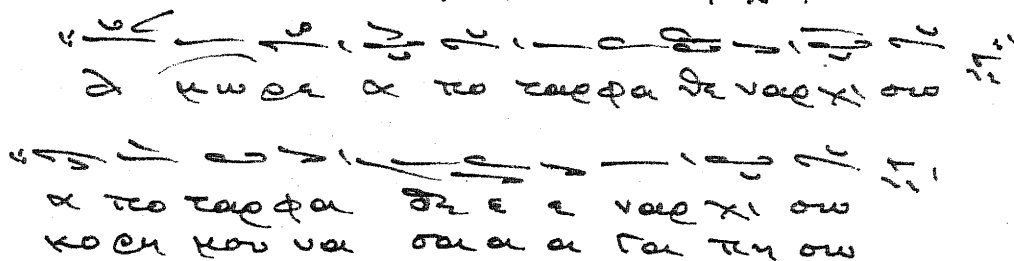 α μωρε α πο ταρφα θε ναρχι σω
α πο ταρφα θε ε ε ναρχι σω
κο ρη μου να σα α α γα πη σω